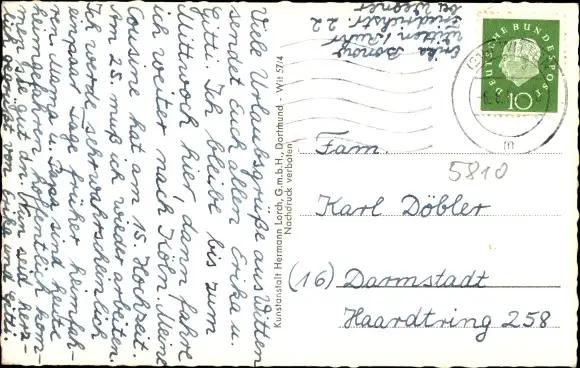 Viele Urlaubsgrüße aus Witten
sendet Euch allen Erika u.
Gitti. Ich bleibe bis zum
Mittwoch hier, dann fahre
ich weiter nach Köln. Meine
Cousine hat am 15. Hochzeit.
Am 25. muß ich wieder arbeiten.
Ich werde sehrwahrscheinlich
ein paar Tage früher heimfah-
ren. Mama u. Papa sind heute
heimgefahren hoffentlich kom-
men sie gut an. Nun sud herz-
lich gegrüßt von Erika und Gitti.
Erika
Witten Ruhr
Friedrichstr. 22
bei Wegner
Kunstanstalt Hermann Lorch, G.m.b.H., Dortmund - Wit 57/4
Nachdruck verboten
DEUTSCHE BUNDESPOST
10
m
Fam.
5810
Karl Döbler
(16) Darmstadt
Haardtring 258